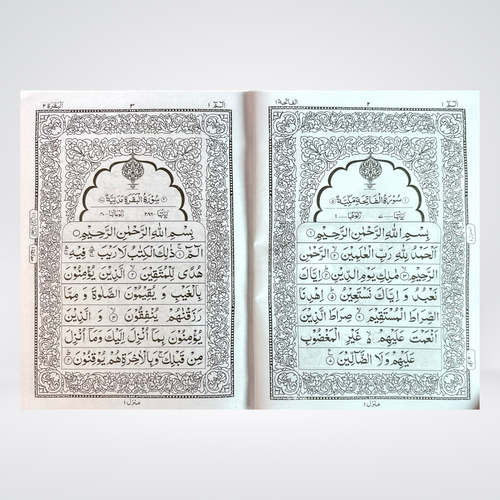 الفاتحة ١
٢
الٓمّٓ ١
سُوْرَةُ الْفَاتِحَةِ مَكِّيَّةٌ
بِسْمِ اللّٰهِ الرَّحْمٰنِ الرَّحِيْمِ
اَلْحَمْدُ لِلّٰهِ رَبِّ الْعٰلَمِيْنَ الرَّحْمٰنِ
الرَّحِيْمِ مٰلِكِ يَوْمِ الدِّيْنِ اِيَّاكَ
نَعْبُدُ وَ اِيَّاكَ نَسْتَعِيْنُ اِهْدِنَا
الصِّرَاطَ الْمُسْتَقِيْمَ صِرَاطَ الَّذِيْنَ
اَنْعَمْتَ عَلَيْهِمْ غَيْرِ الْمَغْضُوْبِ
عَلَيْهِمْ وَلَا الضَّآلِّيْنَ
منزل ١
البقرة ٢
٣
الٓمّٓ ١
سُوْرَةُ الْبَقَرَةِ مَدَنِيَّةٌ
بِسْمِ اللّٰهِ الرَّحْمٰنِ الرَّحِيْمِ
الٓمّٓ ذٰلِكَ الْكِتٰبُ لَا رَيْبَ فِيْهِ
هُدًى لِّلْمُتَّقِيْنَ الَّذِيْنَ يُؤْمِنُوْنَ
بِالْغَيْبِ وَ يُقِيْمُوْنَ الصَّلٰوةَ وَ مِمَّا
رَزَقْنٰهُمْ يُنْفِقُوْنَ وَ الَّذِيْنَ
يُؤْمِنُوْنَ بِمَآ اُنْزِلَ اِلَيْكَ وَمَآ اُنْزِلَ
مِنْ قَبْلِكَ وَبِالْاٰخِرَةِ هُمْ يُوْقِنُوْنَ
منزل ١